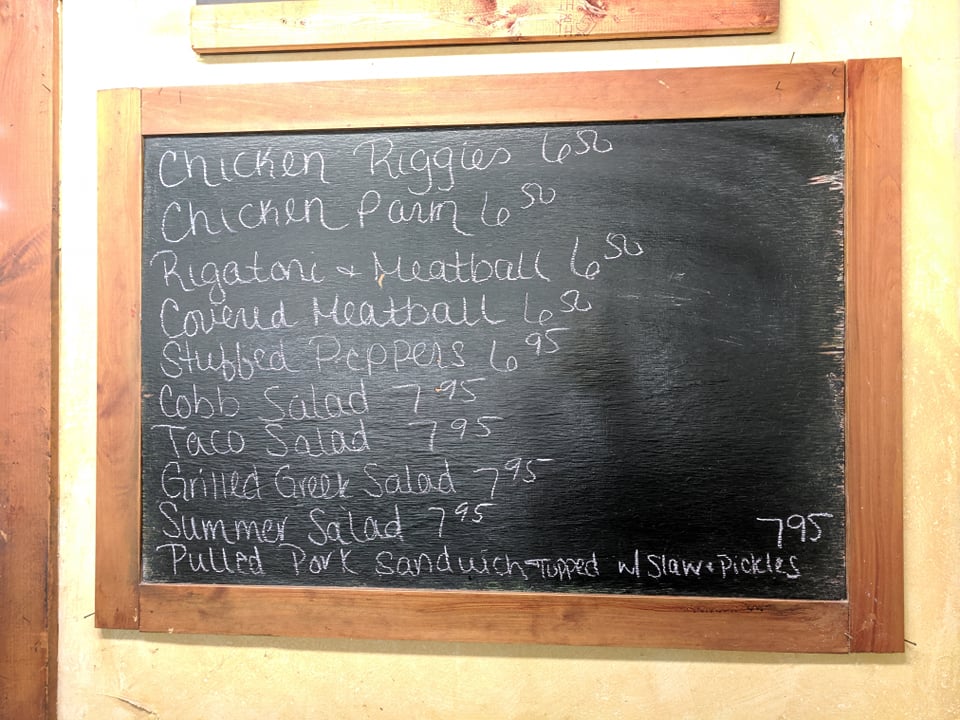 Chicken Riggies 6 50
Chicken Parm 6 50
Rigatoni + Meatball 6 50
Covered Meatball 6 50
Stuffed Peppers 6 95
Cobb Salad 7 95
Taco Salad 7 95
Grilled Greek Salad 7 95
Summer Salad 7 95
Pulled Pork Sandwich - Topped w/ Slaw + Pickles 7 95